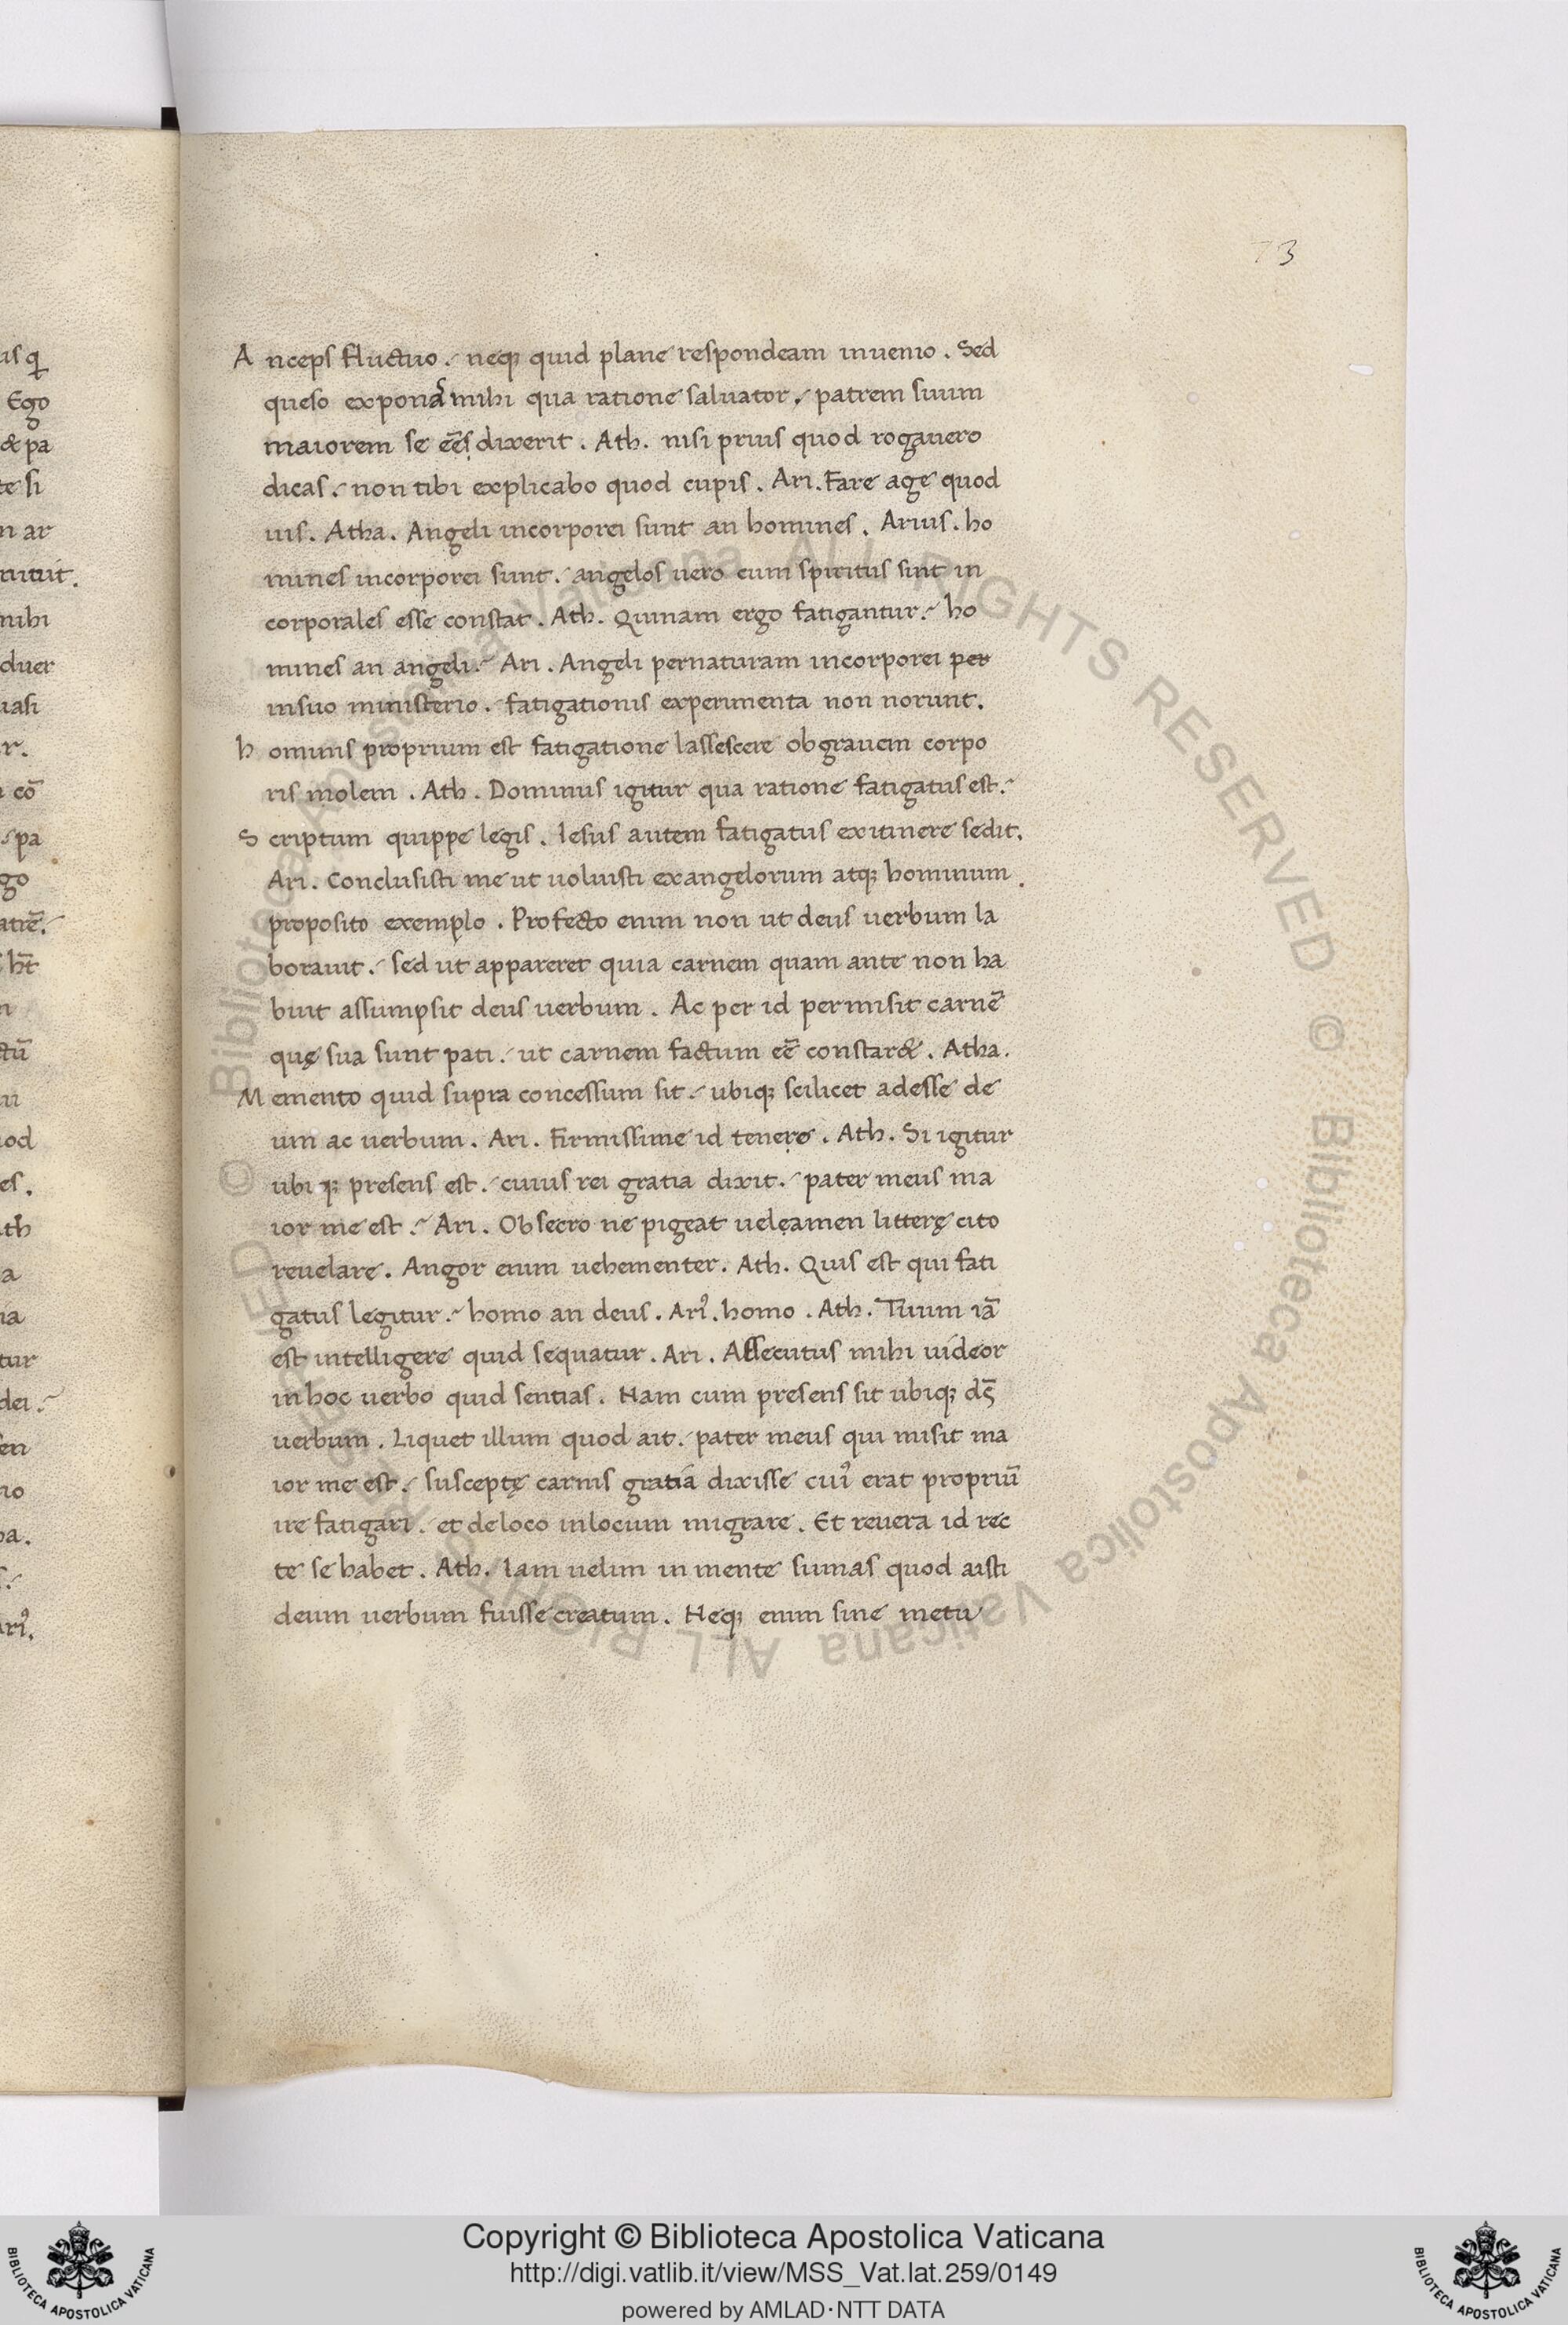 73
us q
Ego
& pa
te si
n ar
nihi
duer
uasi
r.
a cō
pa
go
atrē.
hr̄t
n
ctū
od
es.
th
a
tur
dei.
sen
io
pa.
arꝰ.
A nceps fluctuo. neqꝫ quid plane respondeam inuenio. Sed
queso exponas mihi qua ratione saluator. patrem suum
maiorem se ēēs dixerit. Ath. nisi prius quod rogauero
dicas. non tibi explicabo quod cupis. Ari. Fare age quod
uis. Atha. Angeli incorporei sunt an homines. Arius. ho
mines incorporei sunt. angelos uero cum spiritus sint in
corporales esse constat. Ath. Quinam ergo fatigantur. ho
mines an angeli. Ari. Angeli pernaturam incorporei per
insuo ministerio. fatigationis experimenta non norunt.
h ominis proprium est fatigatione lassescere obgrauem corpo
ris molem. Ath. Dominus igitur qua ratione fatigatus est.
S criptum quippe legis. Iesus autem fatigatus exitinere sedit.
Ari. Conclusisti me ut uoluisti exangelorum atqꝫ hominum.
proposito exemplo. Profecto enim non ut deus uerbum la
borauit. sed ut appareret quia carnem quam ante non ha
buit assumpsit deus uerbum. Ac per id permisit carnē
quę sua sunt pati. ut carnem factum eē constar&. Atha.
M emento quid supra concessum sit. ubiqꝫ scilicet adesse de
um ac uerbum. Ari. Firmissime id tenere. Ath. Si igitur
ubi qꝫ presens est. cuius rei gratia dixit. pater meus ma
ior me est. Ari. Obsecro ne pigeat ueleamen litterę cito
reuelare. Angor enim uehementer. Ath. Quis est qui fati
gatus legitur. homo an deus. Arꝰ. homo. Ath. Tuum iā
est intelligere quid sequatur. Ari. Assecutus mihi uideor
inhoc uerbo quid sentias. Nam cum presens sit ubiqꝫ ds̄
uerbum. Liquet illum quod ait. pater meus qui misit ma
ior me est. susceptę carnis gratia dixisse cuiꝰ erat propriū
ire fatigari. et deloco inlocum migrare. Et reuera id rec
te se habet. Ath. Iam uelim in mente sumas quod aisti
deum uerbum fuisse creatum. Neqꝫ enim sine metu
© Biblioteca Apostolica Vaticana ALL RIGHTS RESERVED © Biblioteca Apostolica Vaticana ALL RIGHTS RESERVED
Copyright © Biblioteca Apostolica Vaticana
http://digi.vatlib.it/view/MSS_Vat.lat.259/0149
powered by AMLAD·NTT DATA
BIBLIOTECA APOSTOLICA VATICANA
BIBLIOTECA APOSTOLICA VATICANA